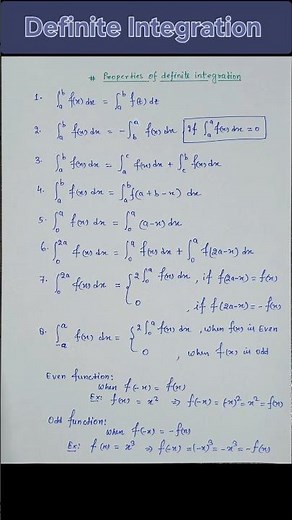 Definite Integration
# Properties of definite integration
1. ∫_a^b f(x) dx = ∫_a^b f(t) dt
2. ∫_a^b f(x) dx = -∫_b^a f(x) dx, If ∫_a^a f(x) dx = 0
3. ∫_a^b f(x) dx = ∫_a^c f(x) dx + ∫_c^b f(x) dx
4. ∫_a^b f(x) dx = ∫_a^b f(a+b-x) dx
5. ∫_0^a f(x) dx = ∫_0^a (a-x) dx
6. ∫_0^{2a} f(x) dx = ∫_0^a f(x) dx + ∫_0^a f(2a-x) dx
7. ∫_0^{2a} f(x) dx = { 2∫_0^a f(x) dx, if f(2a-x) = f(x)
0 , if f(2a-x) = -f(x)
8. ∫_{-a}^a f(x) dx = { 2∫_0^a f(x) dx, when f(x) is Even
0 , when f(x) is odd
Even function:
when f(-x) = f(x)
Ex: f(x) = x² ⇒ f(-x) = (-x)² = x² = f(x)
Odd function:
when f(-x) = -f(x)
Ex: f(x) = x³ ⇒ f(-x) = (-x)³ = -x³ = -f(x)